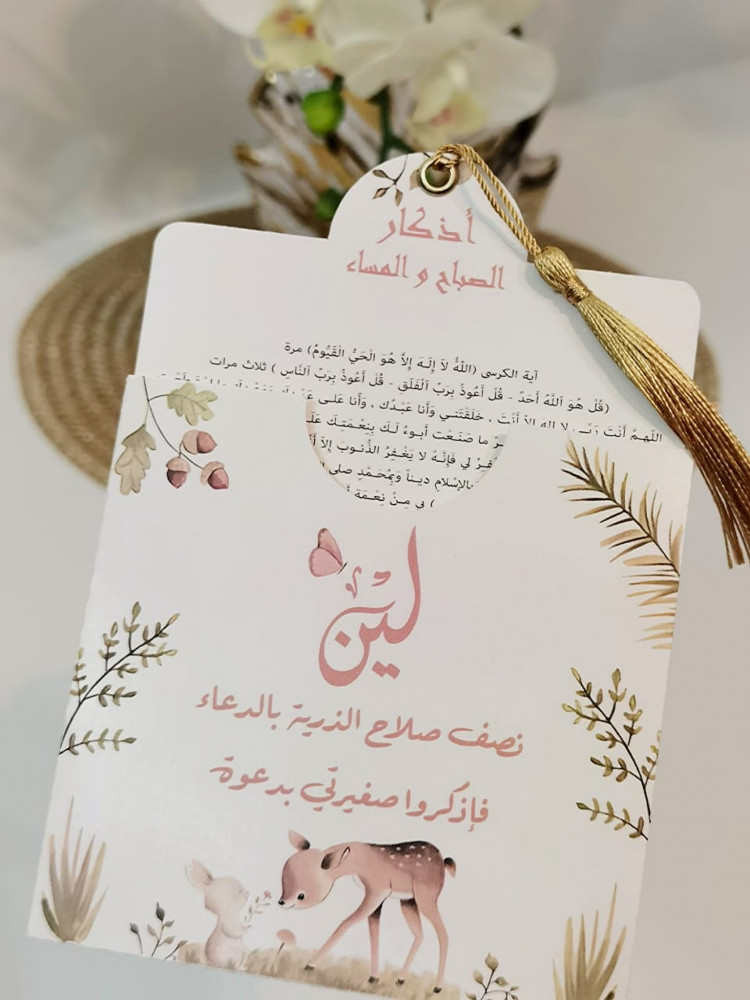 أذكار
الصباح و المساء
آية الكرسي (اللَّهُ لاَ إِلَـهَ إِلاَّ هُوَ الْحَيُّ الْقَيُّومُ) مرة
(قُلْ هُوَ اللَّهُ أَحَدٌ - قُلْ أَعُوذُ بِرَبِّ الْفَلَقِ - قُلْ أَعُوذُ بِرَبِّ النَّاسِ ) ثلاث مرات
اللّهمَّ أَنْتَ رَبِّـي لا إلهَ إلاّ أَنْتَ ، خَلَقْتَنـي وَأَنا عَبْـدُك ، وَأَنا عَلـى
ما صَنَـعْت أَبـوءُ لَـكَ بِنِعْـمَتِـكَ
لي فَإِنَّـهُ لا يَغْـفِرُ الذُّنـوبَ إِلاّ
بِالإسْلامِ ديـناً وَبِمُحَـمَّدٍ صلى
بي مِـنْ نِعْـمَةٍ
لين
نصف صلاح الذرية بالدعاء
فإذكروا صغيرتي بدعوة